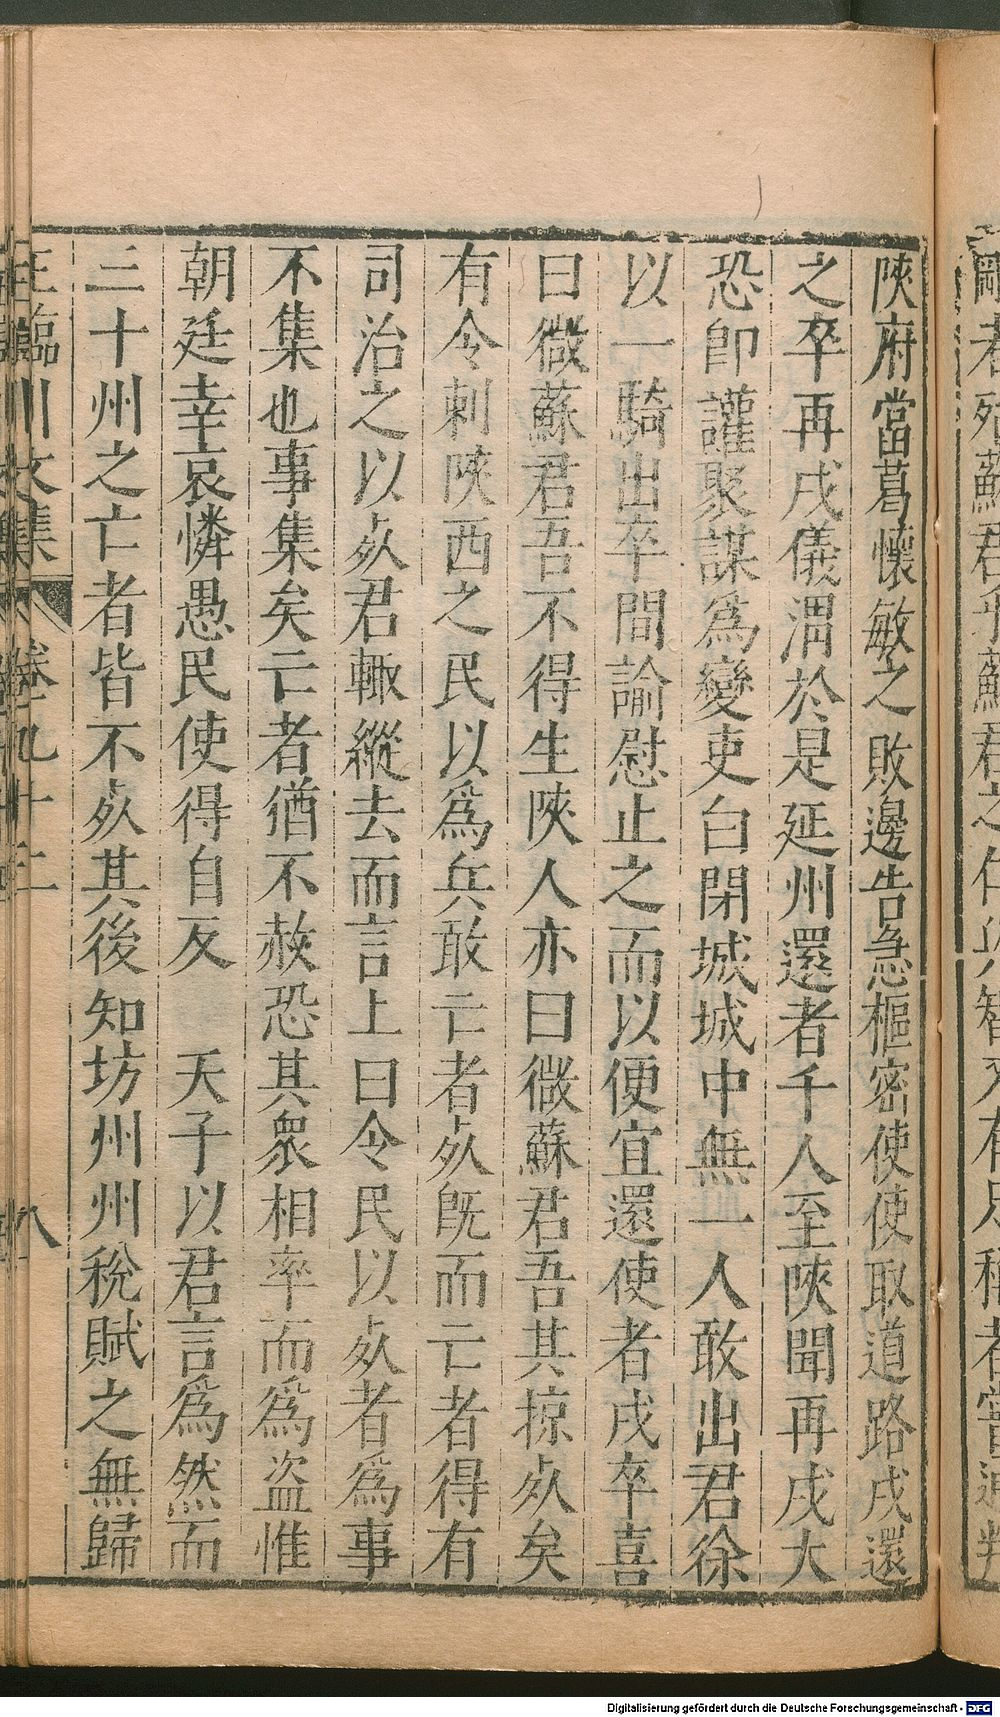 陝府當葛懷敏之敗邊告急樞密使使取道路戍還
之卒再戍儀渭於是延州還者千人至陝聞再戍大
恐卽讙聚謀爲變吏白閉城城中無一人敢出君徐
以一騎出卒間諭慰止之而以便宜還使者戍卒喜
曰微蘇君吾不得生陝人亦曰微蘇君吾其掠死矣
有令刺陝西之民以爲兵敢亡者死旣而亡者得有
司治之以死君輙縱去而言上曰令民以死者爲事
不集也事集矣亡者猶不赦恐其衆相率而爲盜惟
朝廷幸哀憐愚民使得自反　天子以君言爲然而
三十州之亡者皆不死其後知坊州州稅賦之無歸
王臨川文集 卷九十二 八
Digitalisierung gefördert durch die Deutsche Forschungsgemeinschaft - DFG